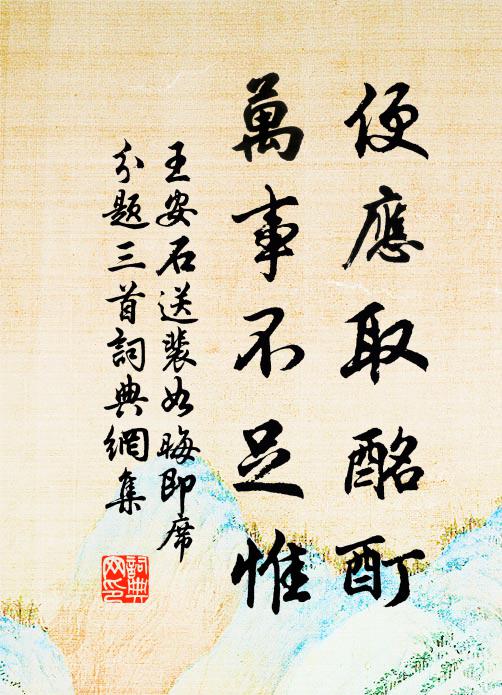 便應取酩酊
萬事不足惟
王安石送裴如晦即席
分題三首詞典網集
詞典
网印